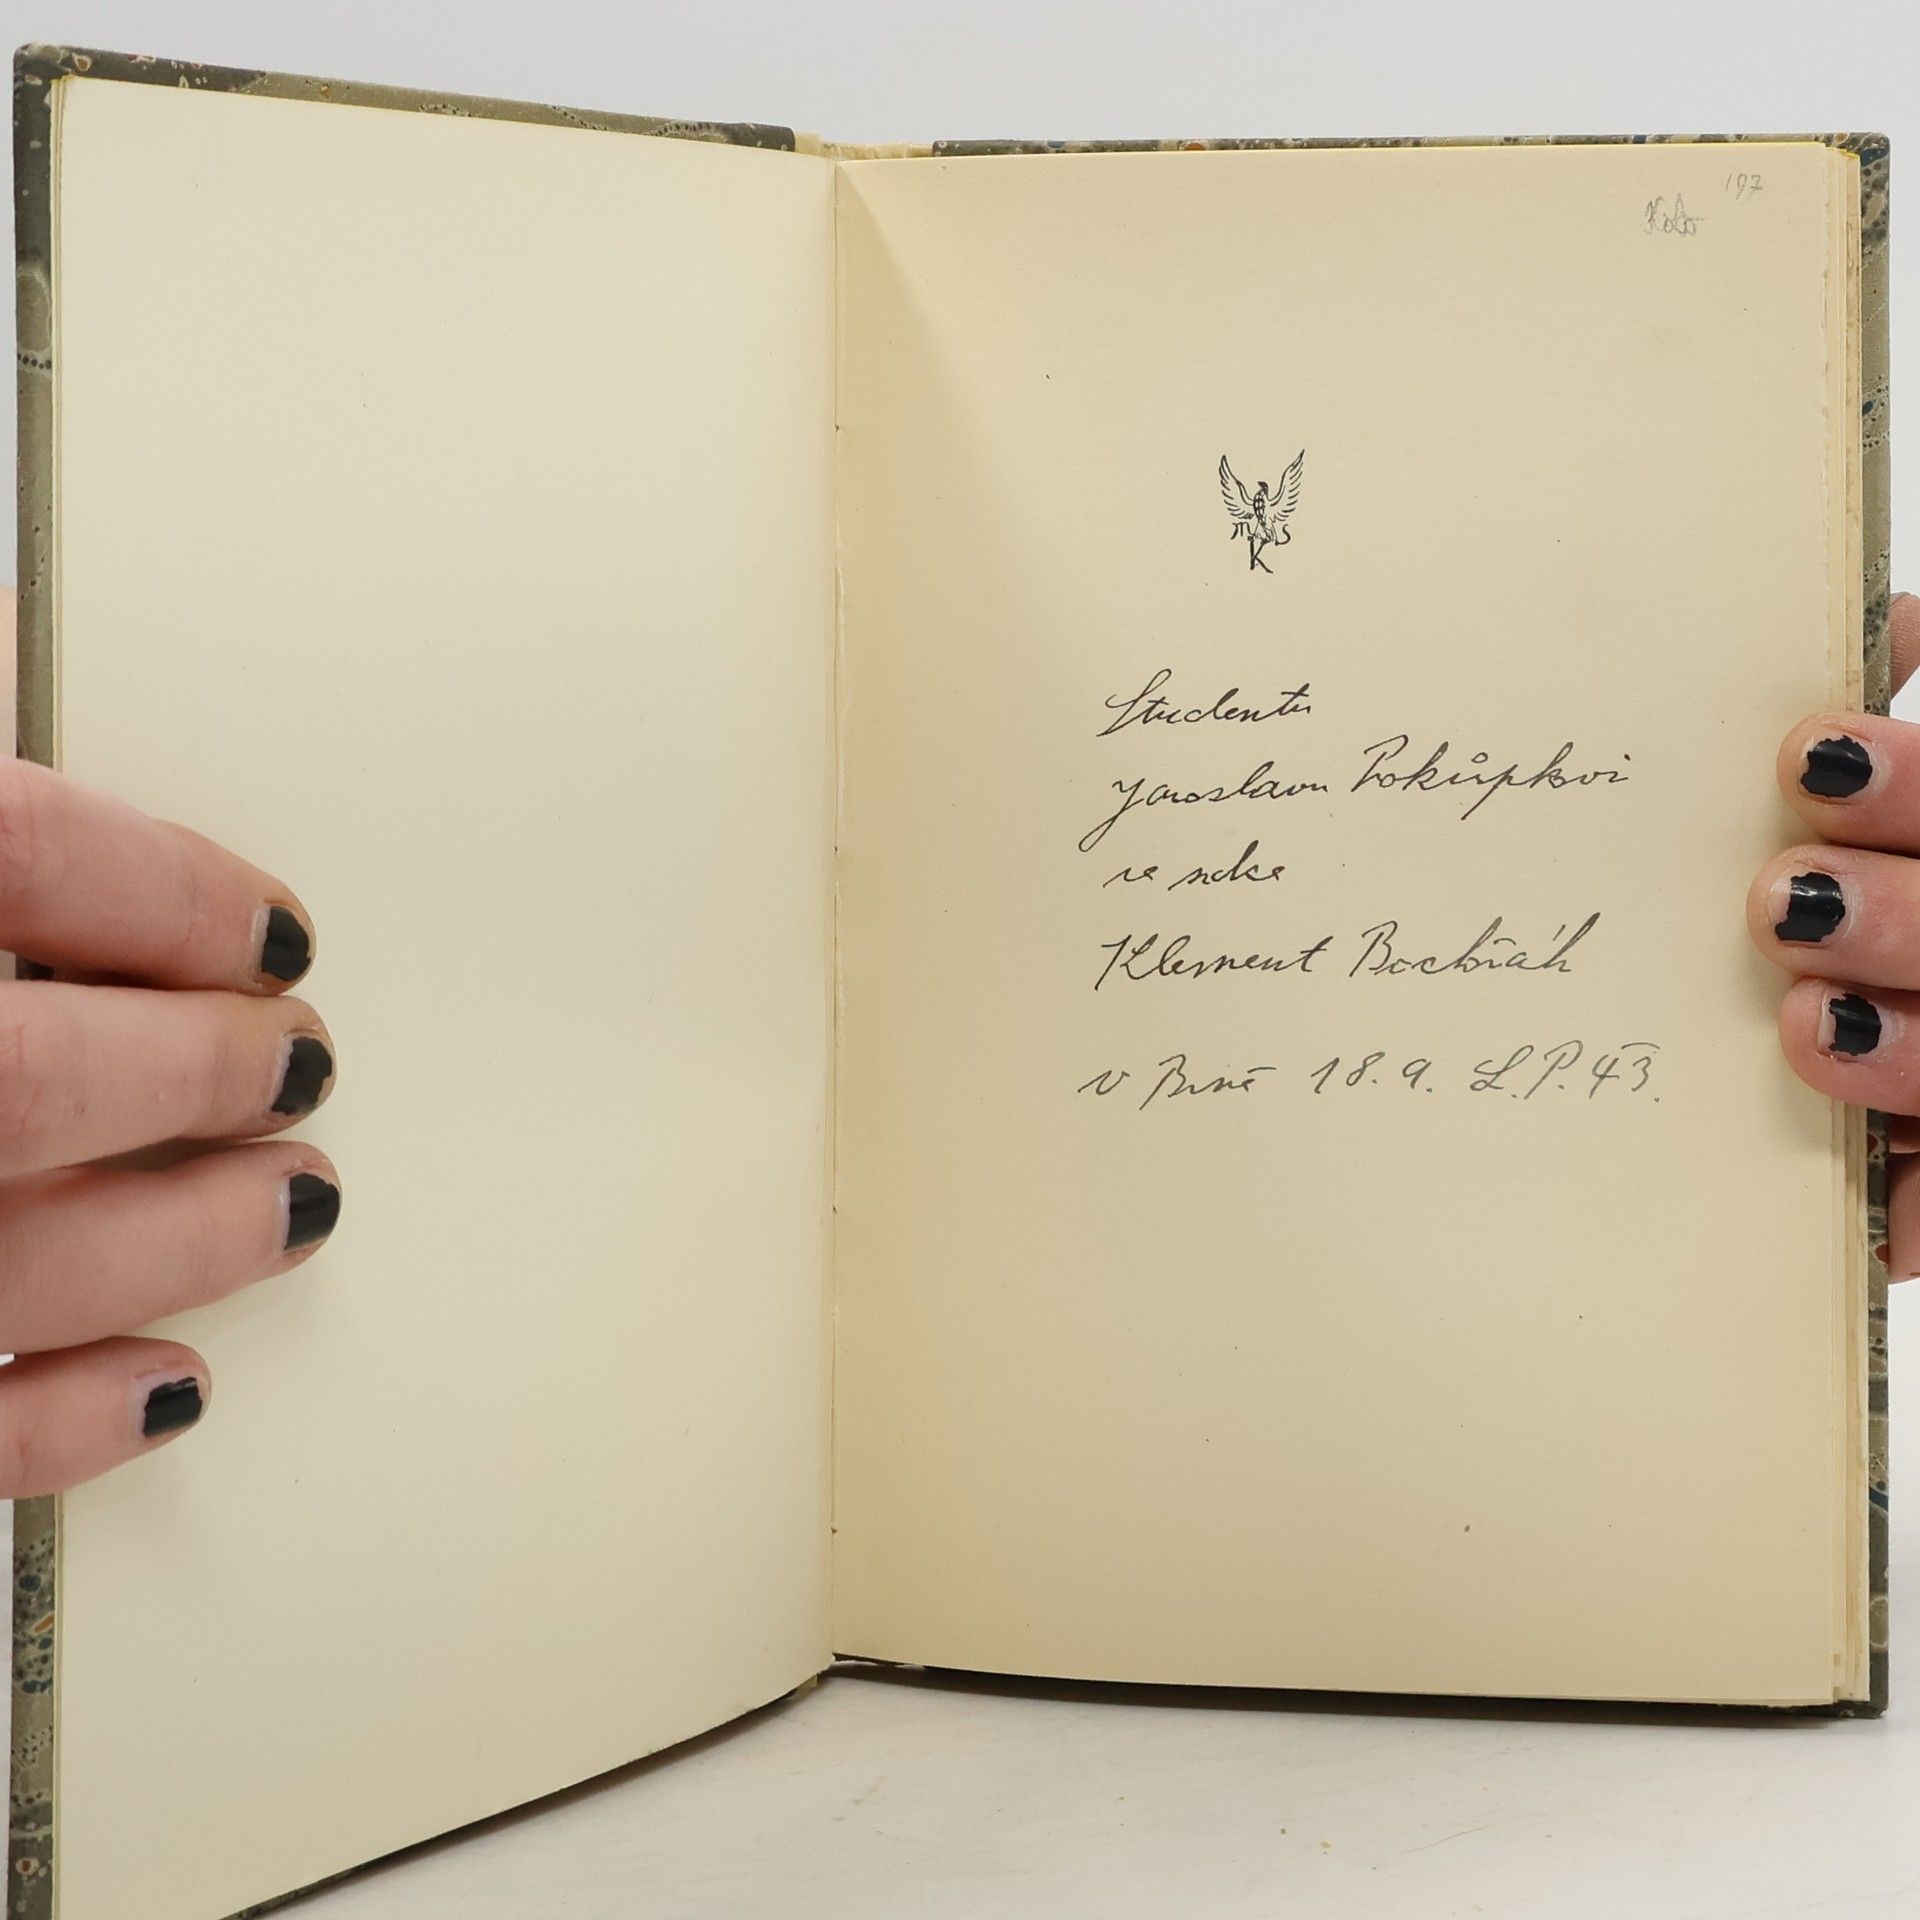 197
m S
K
Studentu
Jaroslavu Pokůpkovi
ve
Klement Bochořák
v Brně 18. 9. L.P. 43.